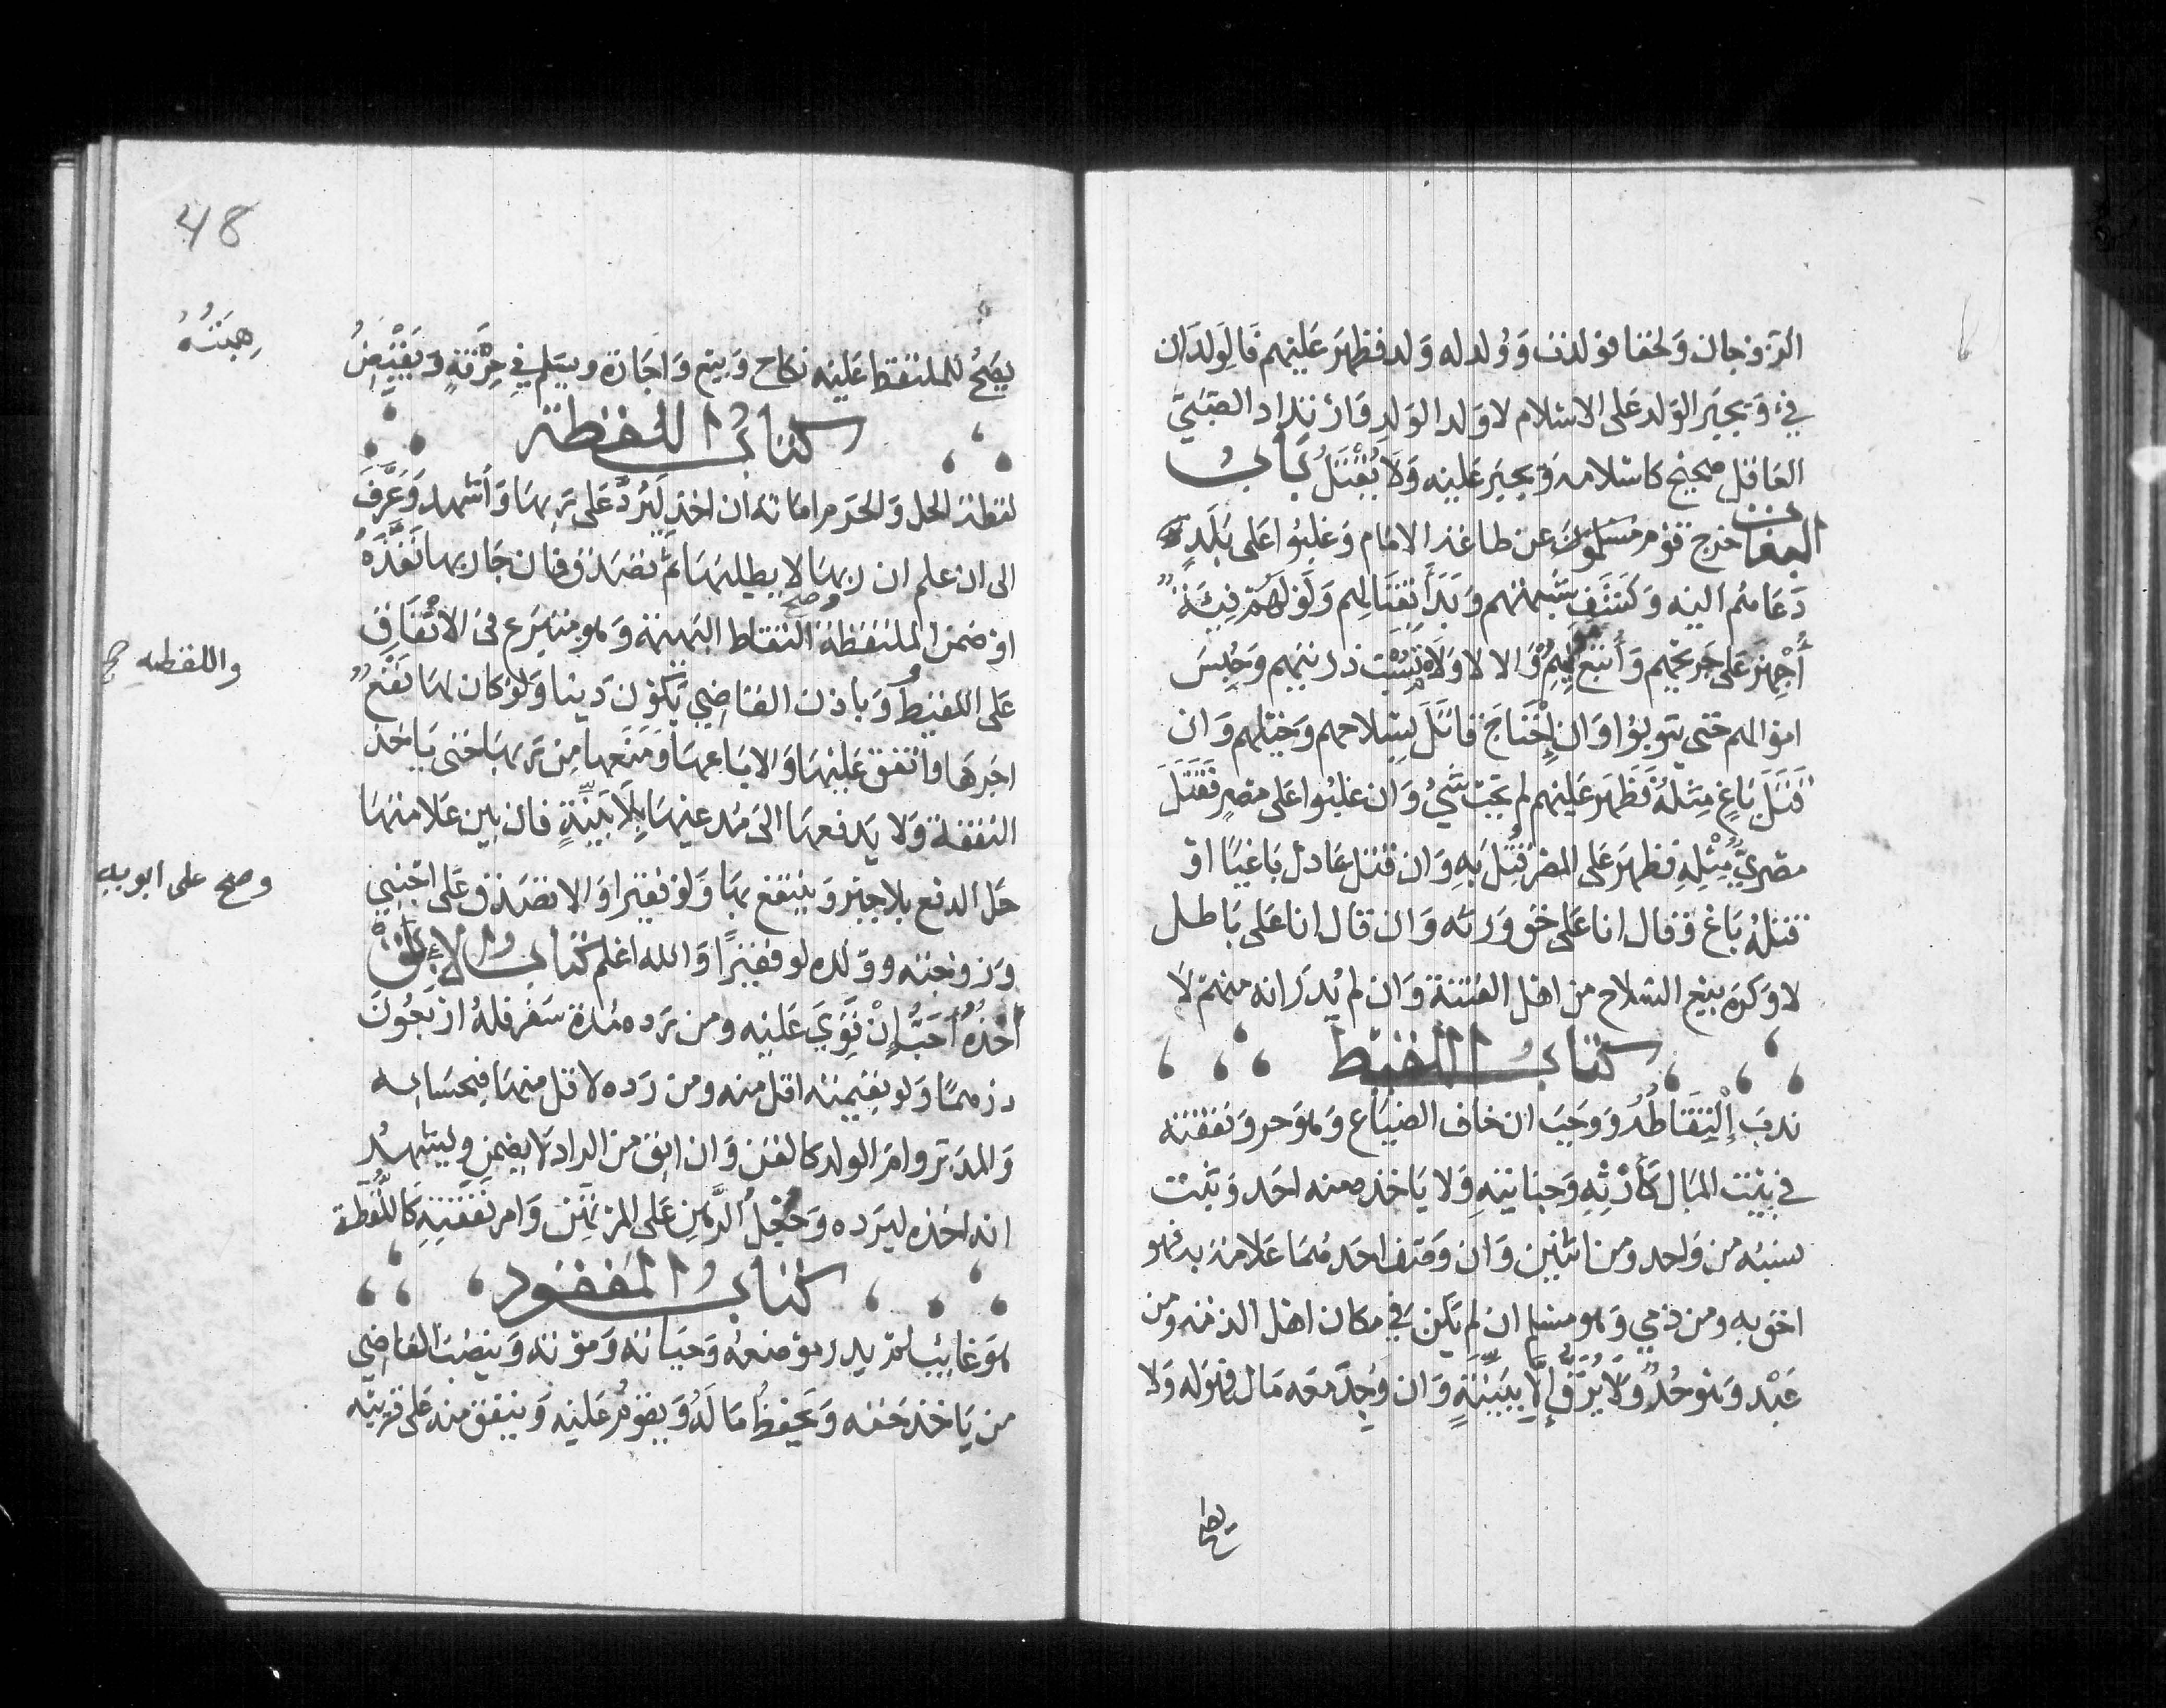 الزوجان ولحقا فولدت وولد له ولد فظهر عليهم فالولدان
فيء ويجبر الولد على الاسلام لا ولد الولد وارتداد الصبي
العاقل صحيح كاسلامه ويجبر عليه ولا يقتل باب
البغات خرج قوم مسلمون عن طاعة الامام وغلبوا على بلد
دعاهم اليه وكشف شبهتهم وبدأ بقتالهم ولو لهم فئة
أجهز على جريحهم وأتبع موليهم والا لا ولا تسب ذريتهم وحبس
اموالهم حتى يتوبوا وان احتاج قاتل بسلاحهم وخيلهم وان
قتل باغ مثله فظهر عليهم لم يجب شيء وان غلبوا على مصر فقتل
مصري مثله فظهر على المصر قتل به وان قتل عادل باغيا او
قتله باغ وقال انا على حق ورثه وان قال انا على باطل
لا وكره بيع السلاح من اهل الفتنة وان لم يدر انه منهم لا
كتاب اللقيط
ندب التقاطه ووجب ان خاف الضياع وهو حر ونفقته
في بيت المال كأرثه وجنايته ولا ياخذه منه احد ويثبت
نسبه من واحد ومن اثنين وان وصف احدهما علامة به فهو
احق به ومن ذمي وهو مسلم ان لم يكن في مكان اهل الذمة ومن
عبد وهو حر ولا يرق إلا ببينة وان وجد معه مال فهو له ولا
يصح
48
يصح للملتقط عليه نكاح وبيع واجارة ويسلم في حرفة ويقبض
هبته
كتاب اللقطة
لقطة الحل والحرم امانة ان اخذ ليرد على ربها واشهد وعرف
الى ان علم ان ربها لا يطلبها ثم تصدق فان جا ربها نفذه
او ضمن الملتقط وصح التقاط البهيمة وهو متبرع في الانفاق
واللقطه صح
على اللقيط وباذن القاضي يكون دينا ولو كان لها نفع
اجرها وانفق عليها والا باعها ومنعها من ربها حتى ياخذ
النفقة ولا يدفعها الى مدعيها بلا بينة فان بين علامتها
حل الدفع بلا جبر وينتفع بها ولو فقيرا والا تصدق على اجنبي
وصح على ابويه
وزوجته وولده لو فقيرا والله اعلم كتاب الابق
اخذه احب إن قوي عليه ومن رده مدة سفر فله اربعون
درهما ولو قيمته اقل منه ومن رده لاقل منها فبحسابه
والمدبر وام الولد كالقن وان ابق من الراد لا يضمن ويشهد
انه اخذه ليرده وجعل الرهن على المرتهن وامر نفقته كاللقطة
كتاب المفقود
هو غايب لم يدر موضعه وحياته وموته وينصب القاضي
من ياخذ حقه ويحفظ ماله ويقوم عليه وينفق منه على قريبه